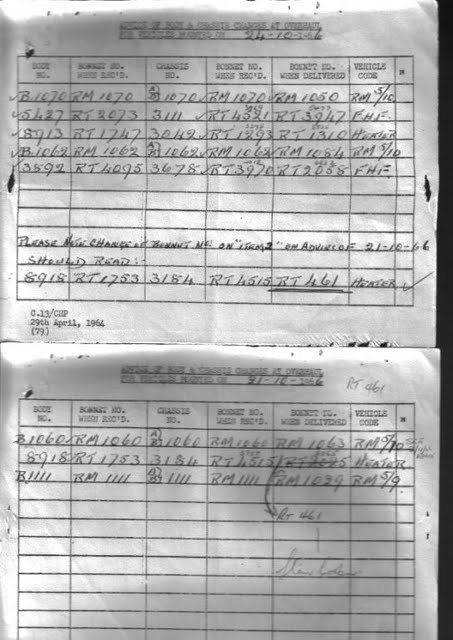 ADVICE OF BODY & CHASSIS CHANGES AT OVERHAUL
FOR VEHICLES MOUNTED ON 24-10-1966
BODY NO. BONNET NO. WHEN REC'D. CHASSIS NO. BONNET NO. WHEN REC'D. BONNET NO. WHEN DELIVERED VEHICLE CODE
B.1070 RM 1070 A/B 1070 RM 1070 RM 1050 RM 5/10
5427 RT 2073 3111 RT 4521 RT 3947 F.H.F.
8913 RT 1747 3042 RT 1293 RT 1310 HEATER
B.1062 RM 1062 A/B 1062 RM 1062 RM 1084 RM 5/10
3892 RT 4095 3678 RT 3970 RT 2058 F.H.F
PLEASE NOTE CHANGE OF BONNET NO. ON "ITEM 2" ON ADVICE OF 21-10-66
SHOULD READ:-
8918 RT 1753 3184 RT 4515 RT 461 HEATER
C.13/CHP
29th April, 1964
(79)
ADVICE OF BODY & CHASSIS CHANGES AT OVERHAUL
FOR VEHICLES MOUNTED ON 21-10-1966
RT 461
BODY NO. BONNET NO. WHEN REC'D. CHASSIS NO. BONNET NO. WHEN REC'D. BONNET NO. WHEN DELIVERED VEHICLE CODE
B1060 RM 1060 A/B 1060 RM 1060 RM 1063 RM 5/10
8918 RT 1753 3184 RT 4515 HEATER
B1111 RM 1111 A/B 1111 RM 1111 RM 1029 RM 5/9
RT 461